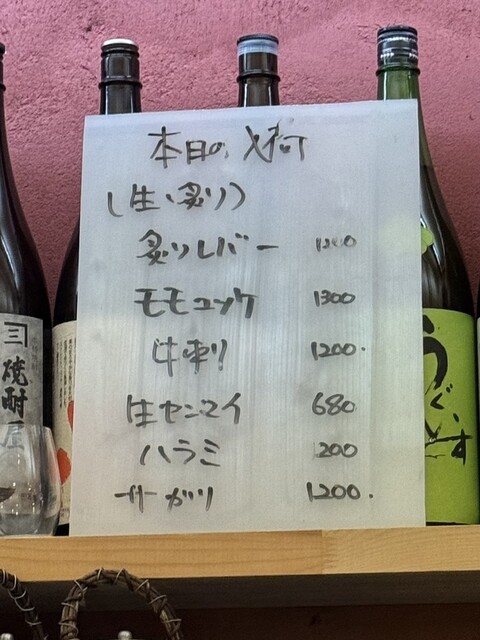 本日の入荷
(生、炙り)
炙りレバー
モモユッケ 1300
牛刺し 1200.
生センマイ 680
ハラミ 200
サーガリ 1200.
焼酎屋
うぐいす